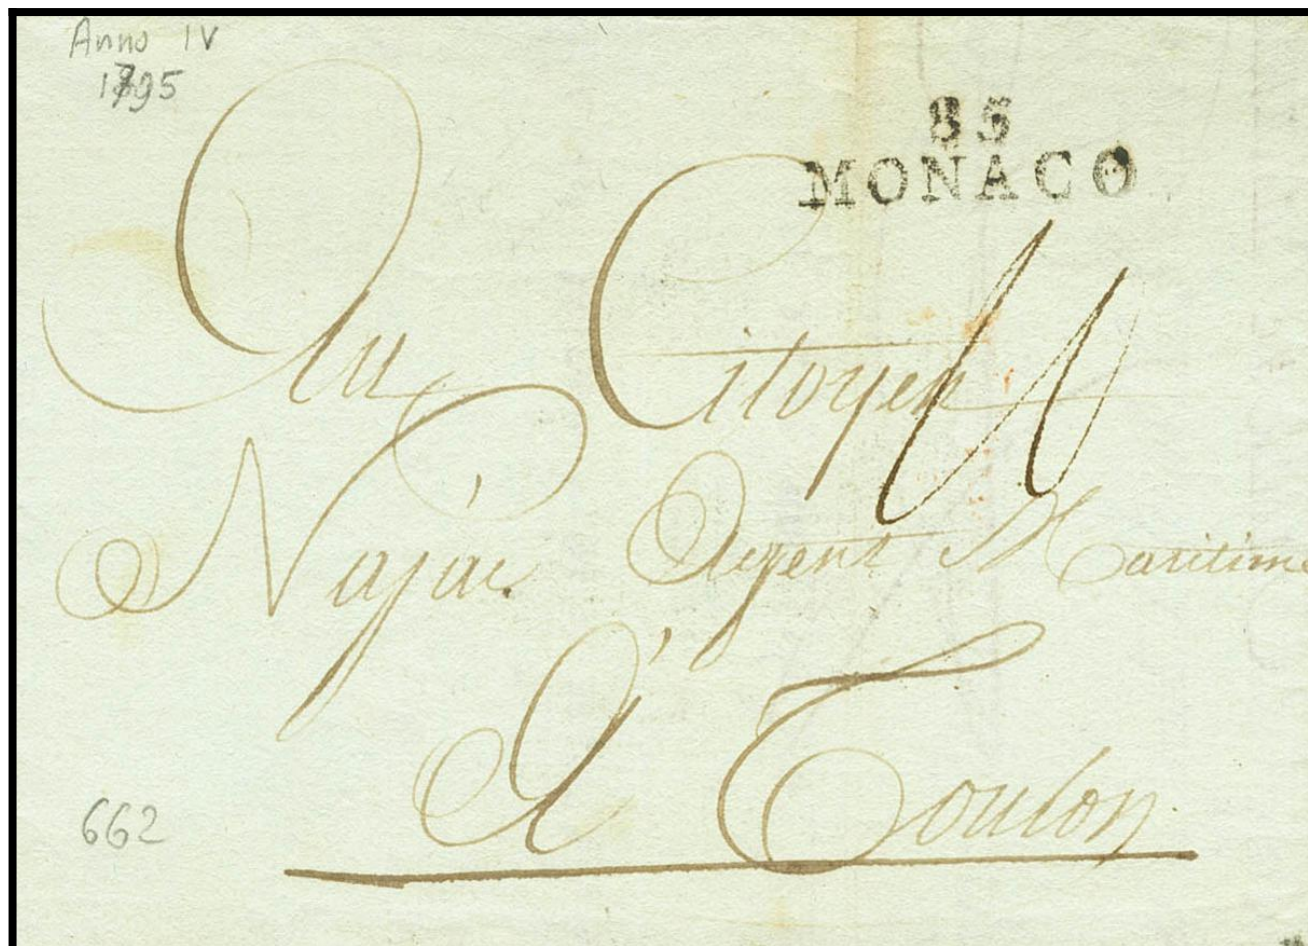 Anno IV
1795
85
MONACO
Au Citoyen
Najac Agent Maritime
À Toulon
662